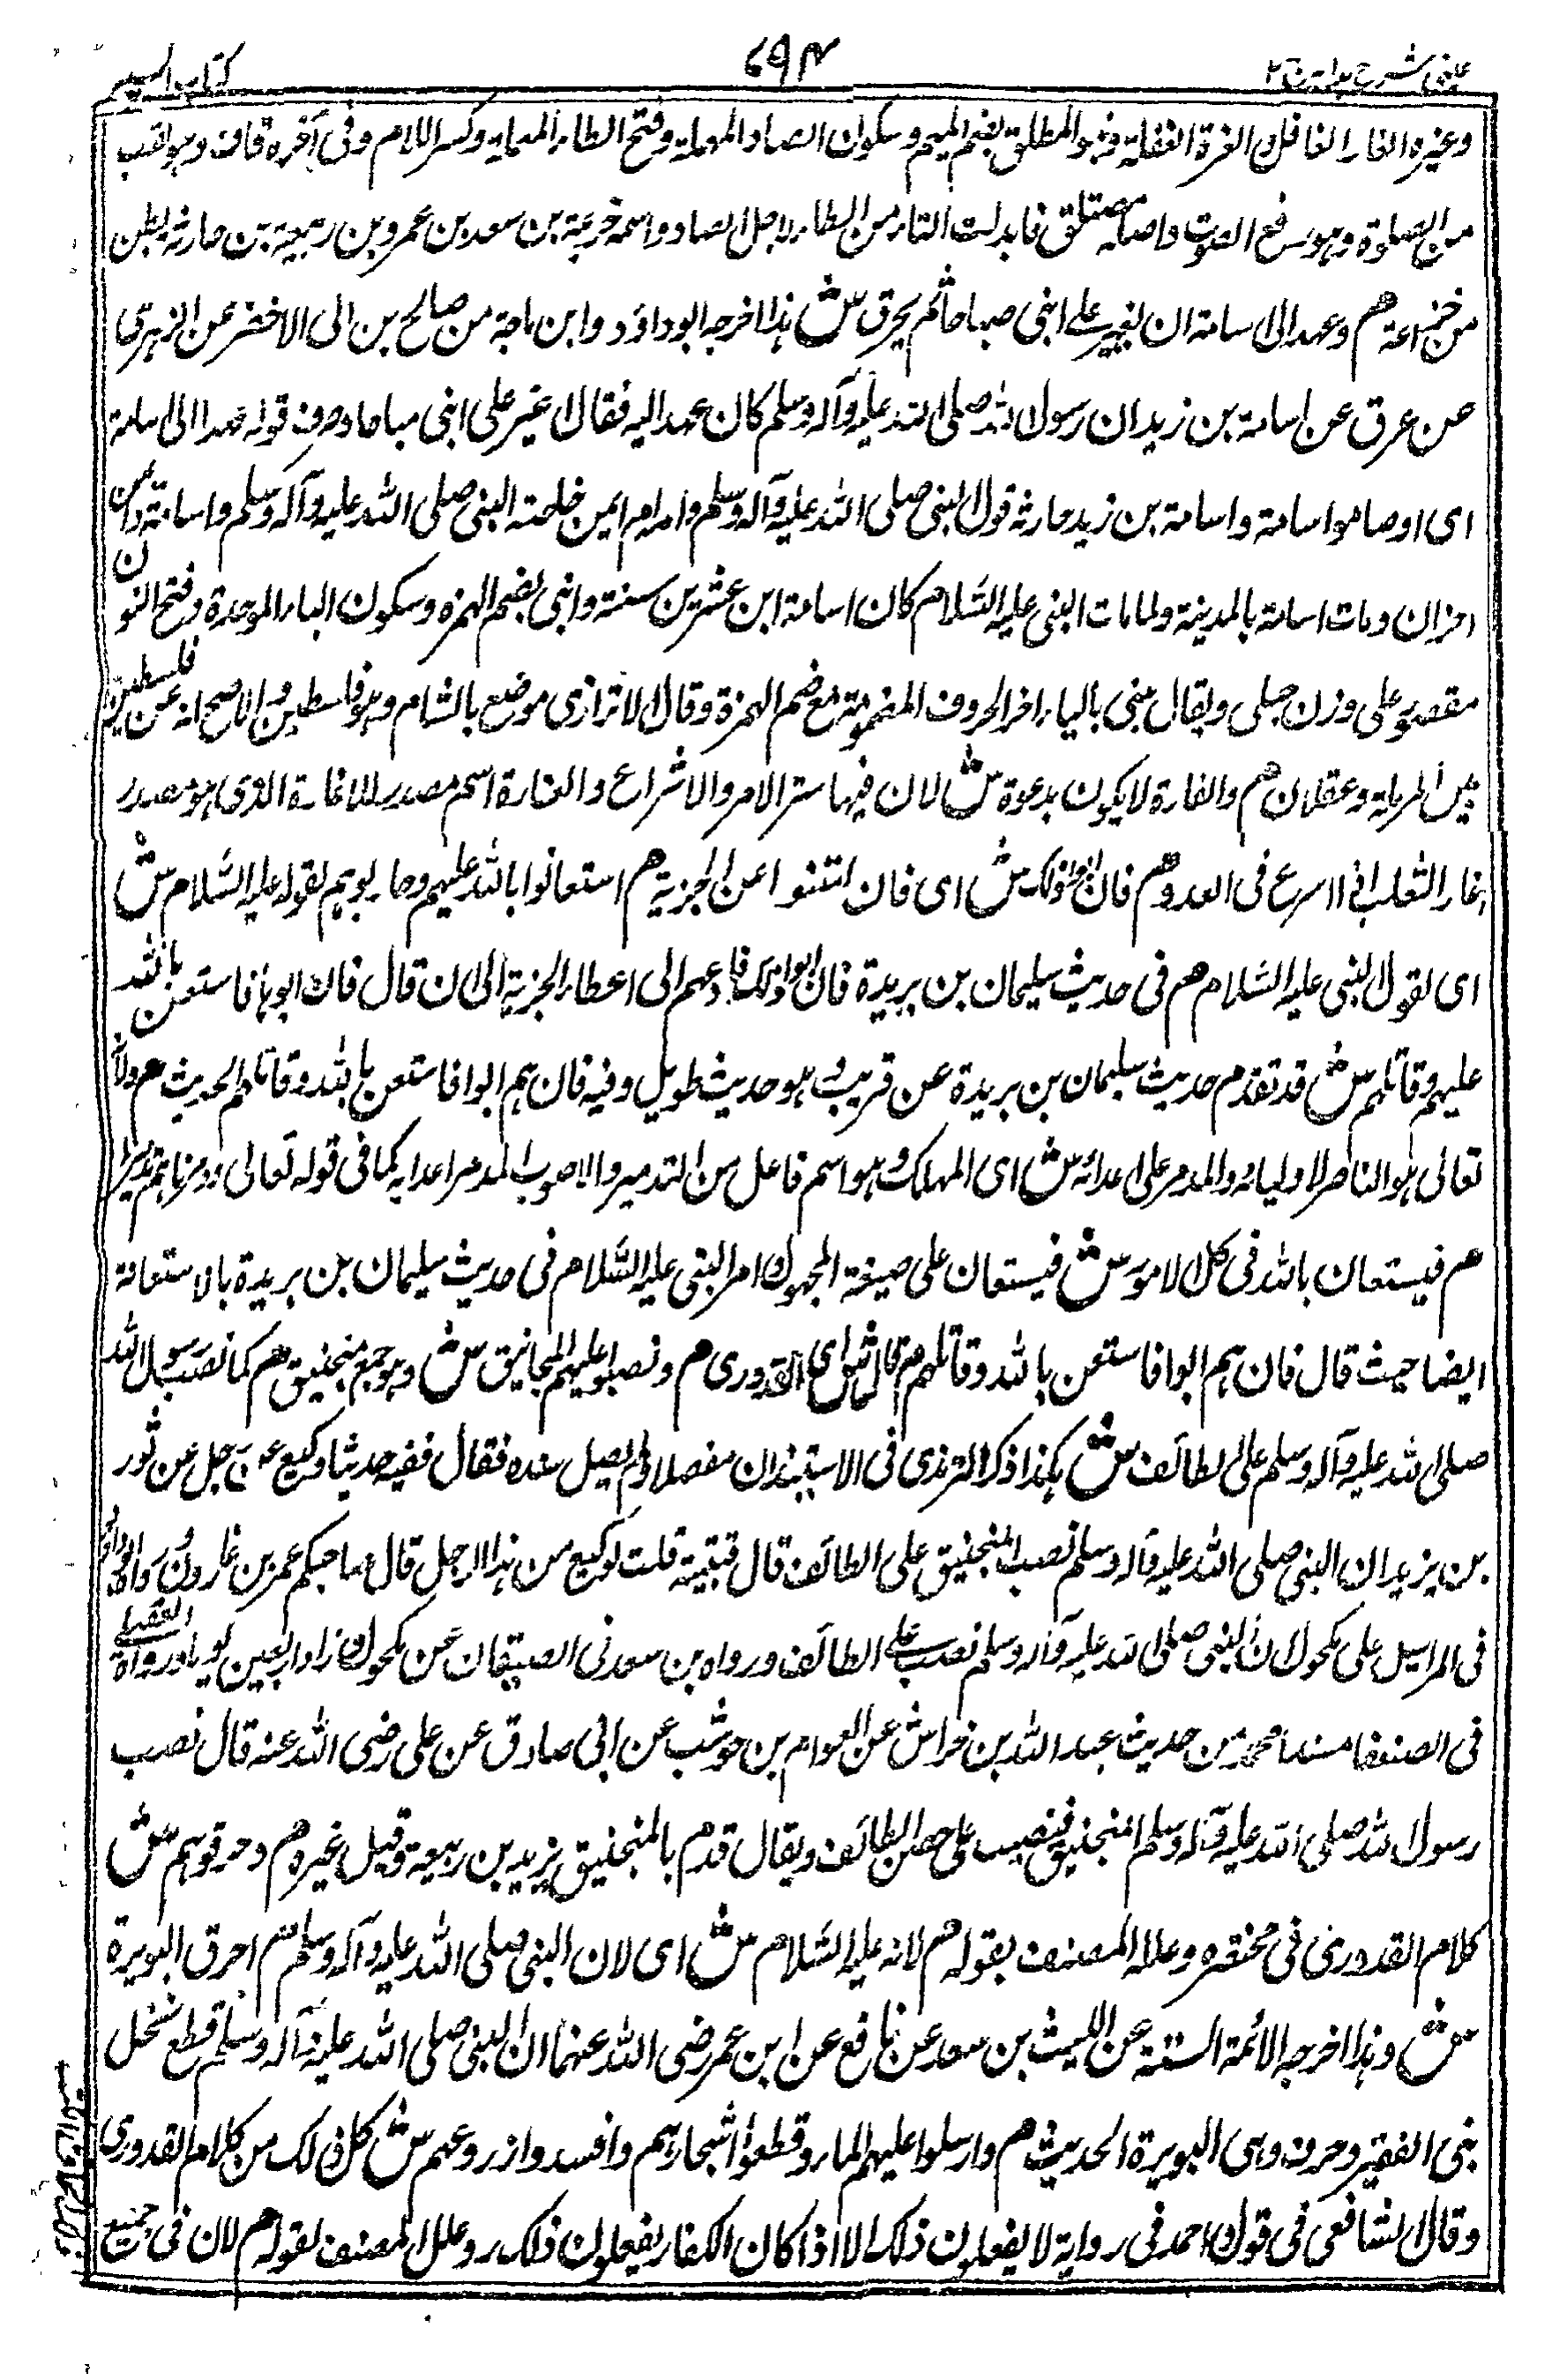 عینی شرح ہدایہ ج ۲
۷۹۴
کتاب السیر
وغیرہ الغار الغافل والغرۃ الغفلۃ وبنو المطلق بضم المیم وسکون الصاد المہملۃ وفتح الطاء المہملۃ وکسر اللام وفی آخرہ قاف وہو لقب
من الصلوۃ وہو رفع الصوت واصلہ مصتلق فابدلت التاء من الطاء لاجل الصاد واسمہ خزیمۃ بن سعد بن عمرو بن ربیعۃ بن حارثۃ بطن
من خزاعۃ ھم وعہد الی اسامۃ ان یغیر علی ابنی صباحا ثم یحرق ش ہذا اخرجہ ابو داؤد وابن ماجۃ من صالح بن ابی الاخضر عن الزہری
عن عرق عن اسامۃ بن زید ان رسول اللہ صلی اللہ علیہ وآلہ وسلم کان عہد الیہ فقال اغیر علی ابنی صباحا وحرق قولہ عہد الی اسامۃ
ای اوصا ہو اسامۃ واسامۃ بن زید حارثۃ قول النبی صلی اللہ علیہ وآلہ وسلم وامہ ام ایمن حاضنۃ النبی صلی اللہ علیہ وآلہ وسلم واسامۃ وایمن
اخوان ومات اسامۃ بالمدینۃ ولما مات النبی علیہ السلام کان اسامۃ ابن عشرین سنۃ وابنی بضم الہمزہ وسکون الباء الموحدۃ وفتح النون
مقصور علی وزن حبلی ویقال یبنی بالیاء اخر الحروف المضمومۃ مع ضم الہمزۃ وقال الاترازی موضع بالشام وہو فلسطین والاصح انہ من فلسطین
بین الرملۃ وعقلان ھم والغارۃ لا یکون بدعوۃ ش لان فیہا ستر الامر والاشراع والغارۃ اسم مصدر للاغارۃ الذی ہو مصدر
اغار الثعلب اذا اسرع فی العدو ھم فان ابوا ذلک ش ای فان امتنعوا عن الجزیۃ ھم استعانوا باللہ علیہم وحاربوہم لقولہ علیہ السلام ش
ای لقول النبی علیہ السلام ھم فی حدیث سلیمان بن بریدۃ فان ابوا ذلک فادعہم الی اعطاء الجزیۃ الی ان قال فان ابوہا فاستعن باللہ
علیہم وقاتلہم ش قد تقدم حدیث سلیمان بن بریدۃ عن قریب وہو حدیث طویل وفیہ فان ہم ابوا فاستعن باللہ وقاتلہم الحدیث ھم ولانہ
تعالی ہو الناصر لاولیائہ والمدمر علی اعدائہ ش ای المہلک وہو اسم فاعل من التدمیر والاصوب المدمر اعدایہ کما فی قولہ تعالی ودمرناہم تدمیرا
ھم فیستعان باللہ فی کل الامور ش فیستعان علی صیغۃ المجہول وامر النبی علیہ السلام فی حدیث سلیمان بن بریدۃ بالاستعانۃ
ایضا حیث قال فان ہم ابوا فاستعن باللہ وقاتلہم ھم قال ش ای القدوری ھم ونصبوا علیہم المجانیق ش وہو جمع منجنیق ھم کما نصب رسول اللہ
صلی اللہ علیہ وآلہ وسلم علی الطائف ش ہکذا ذکر الترمذی فی الاستیذان مفصلا ولم یصل سندہ فقال قتیبۃ حدیثا وکیع عن رجل عن ثور
بن یزید ان النبی صلی اللہ علیہ وآلہ وسلم نصب المنجنیق علی الطائف قال قتیبۃ قلت لوکیع من ہذا الرجل قال صاحبکم عمر بن ہارون رواہ ابو داؤد
فی المراسیل علی مکحول ان النبی صلی اللہ علیہ وآلہ وسلم نصب علی الطائف ورواہ بن سعد فی الطبقات عن مکحول وزاد اربعین یوما ورواہ العقیلی
فی الضعفا مسندا من حدیث عبد اللہ بن خراش عن العوام بن حوشب عن ابی صادق عن علی رضی اللہ عنہ قال نصب
رسول اللہ صلی اللہ علیہ وآلہ وسلم المنجنیق فنصب علی حصن الطائف ویقال قدم بالمنجنیق یزید بن ربیعۃ وقیل غیرہ ھم وحرقوہم ش
کلام القدوری فی مختصرہ وعللہ المصنف بقولہ ھم لانہ علیہ السلام ش ای لان النبی صلی اللہ علیہ وآلہ وسلم ھم احرق البویرۃ
ش وہذا اخرجہ الائمۃ الستۃ عن اللیث بن سعد عن نافع عن ابن عمر رضی اللہ عنہما ان النبی صلی اللہ علیہ وآلہ وسلم قطع نخل
بنی النضیر وحرق وہی البویرۃ الحدیث ھم وارسلوا علیہم الماء وقطعوا اشجارہم وافسدوا زروعہم ش کل ذلک من کلام القدوری
وقال الشافعی فی قول واحمد فی روایۃ لا یفعلون ذلک الا اذا کان الکفار یفعلون ذلک وعلل المصنف بقولہ ھم لان فی جمیع